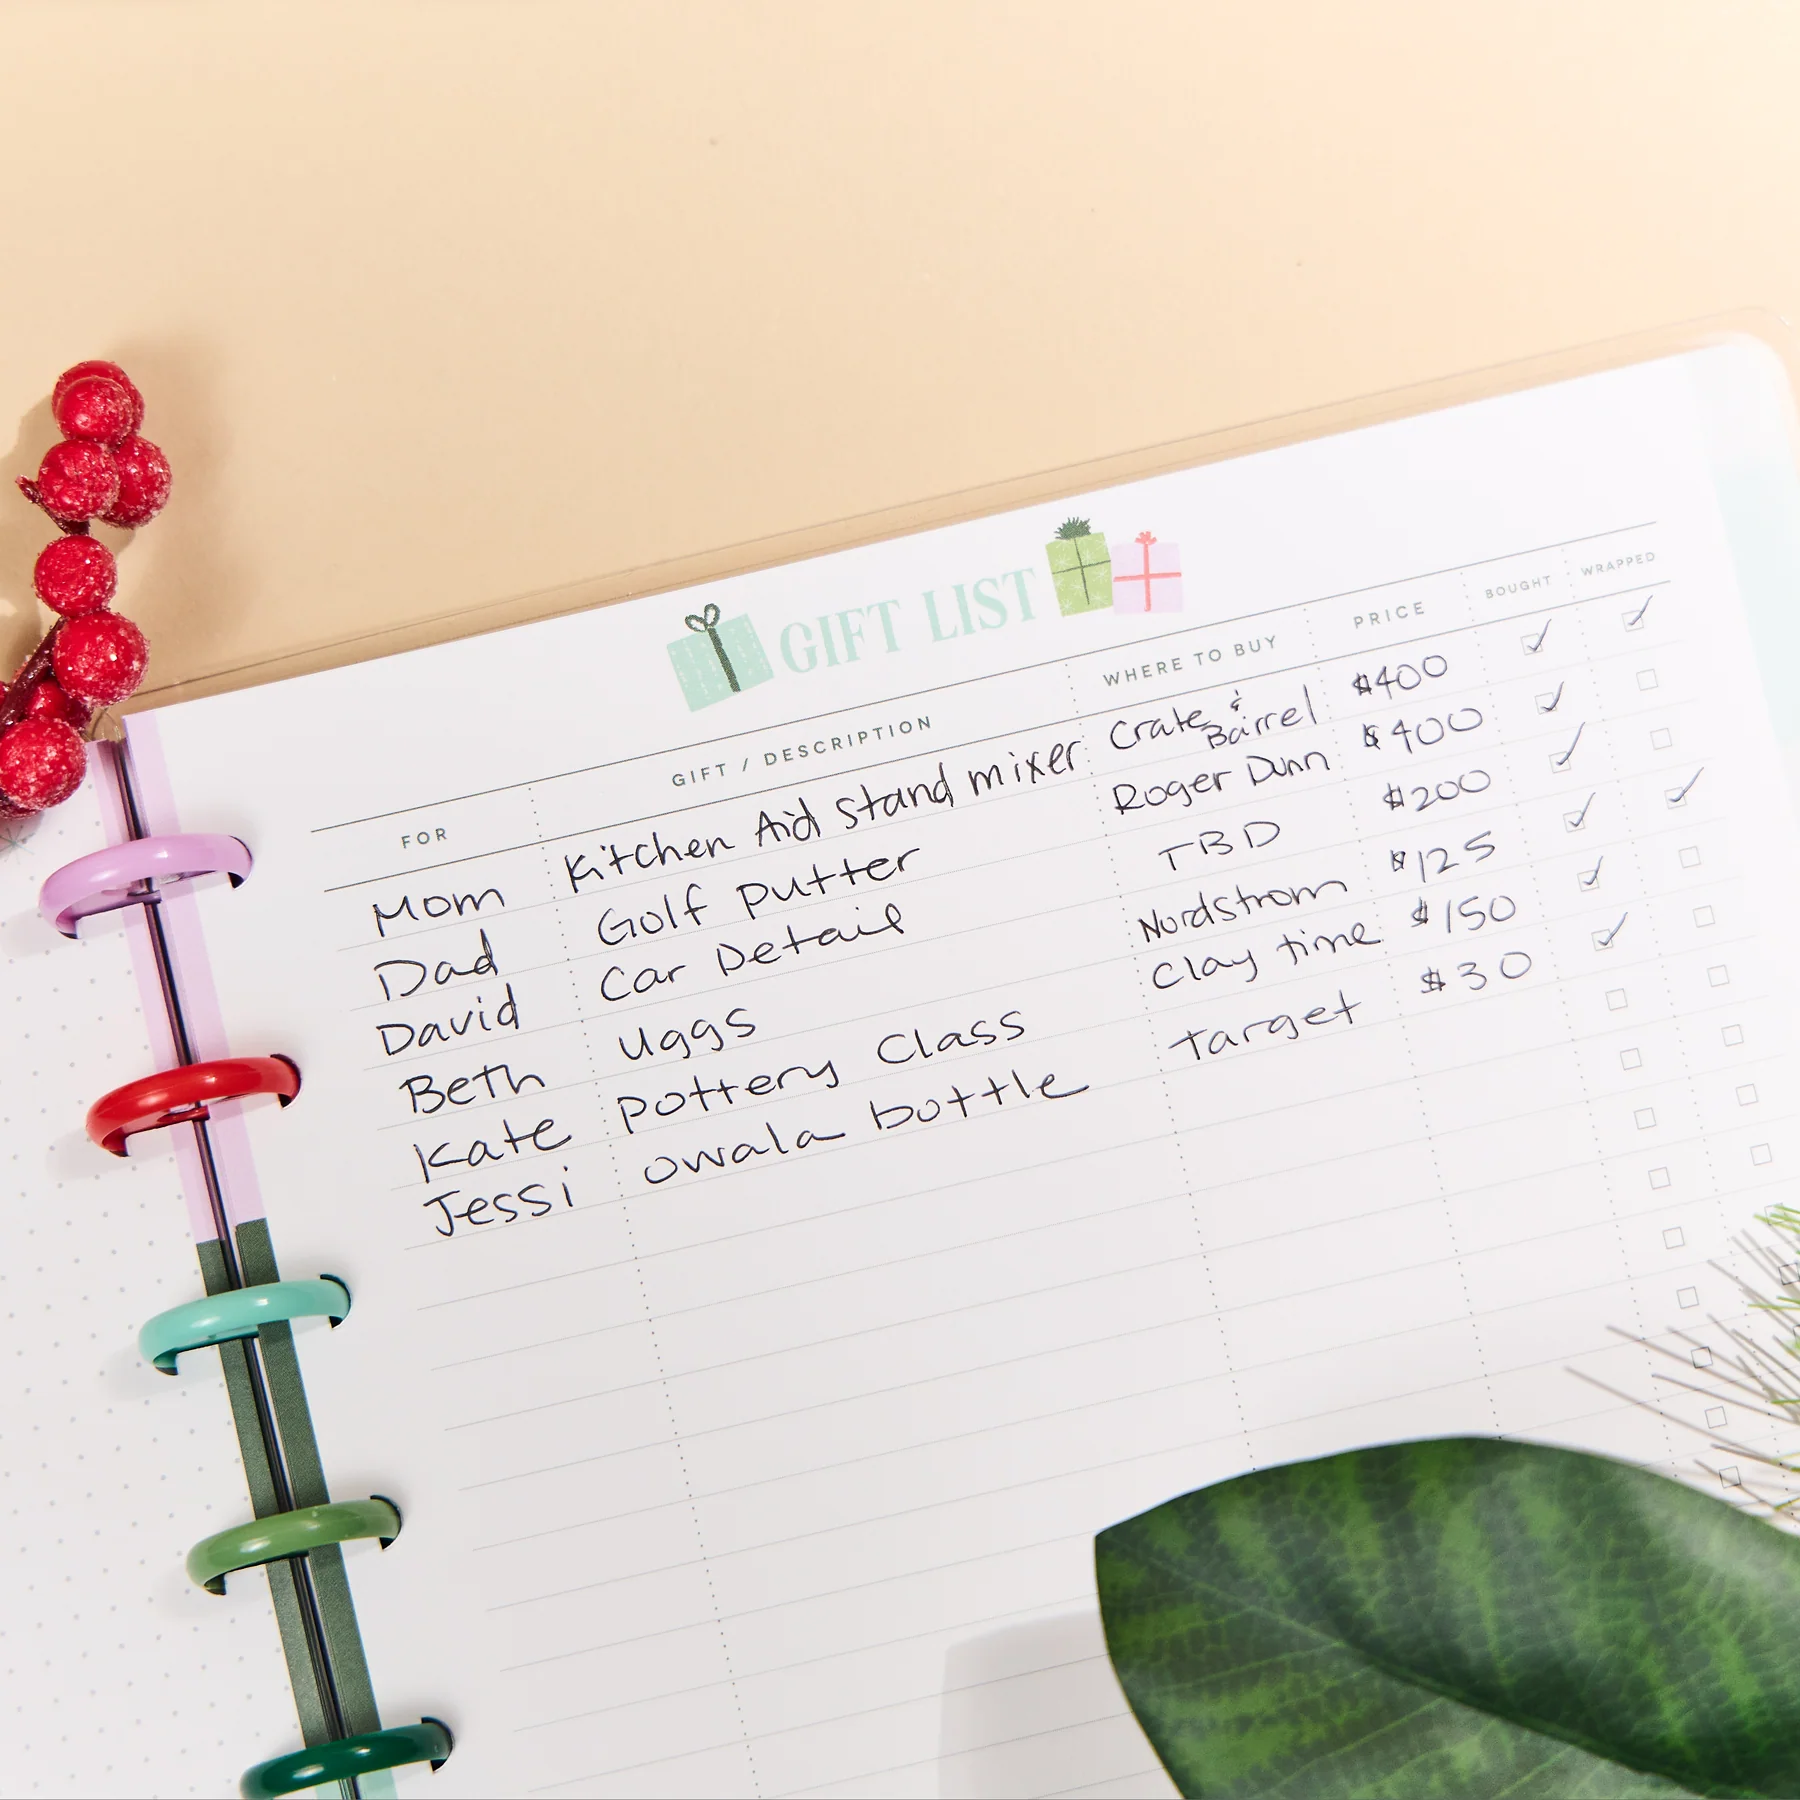 GIFT LIST
FOR GIFT / DESCRIPTION WHERE TO BUY PRICE BOUGHT WRAPPED
Mom Kitchen Aid stand mixer Crate & Barrel $400
Dad Golf putter Roger Dunn $400
David Car Detail TBD $200
Beth Uggs Nordstrom $125
Kate Pottery Class Clay time $150
Jessi owala bottle Target $30